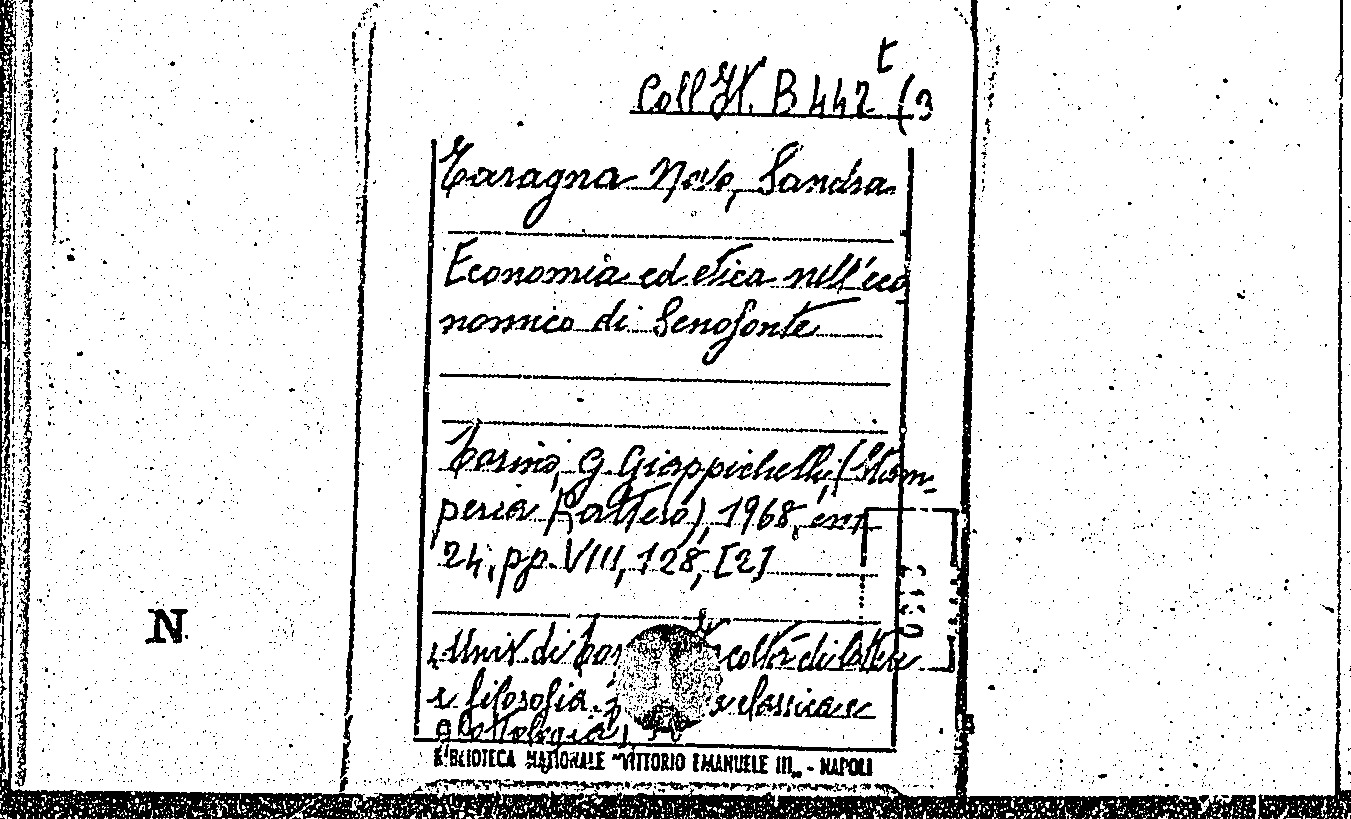 Coll. It. B 442 t (3
Taragna Novo, Sandra
Economia ed etica nell'eco
nomico di Senofonte
Torino, G. Giappichelli, (Stam-
peria Fattero), 1968, in
24, pp. VIII, 128, [2]
(Univ. di Tor coltà di lettere
N
e filosofia. e classica e
glottologia)
BIBLIOTECA NAZIONALE "VITTORIO EMANUELE III„ - NAPOLI